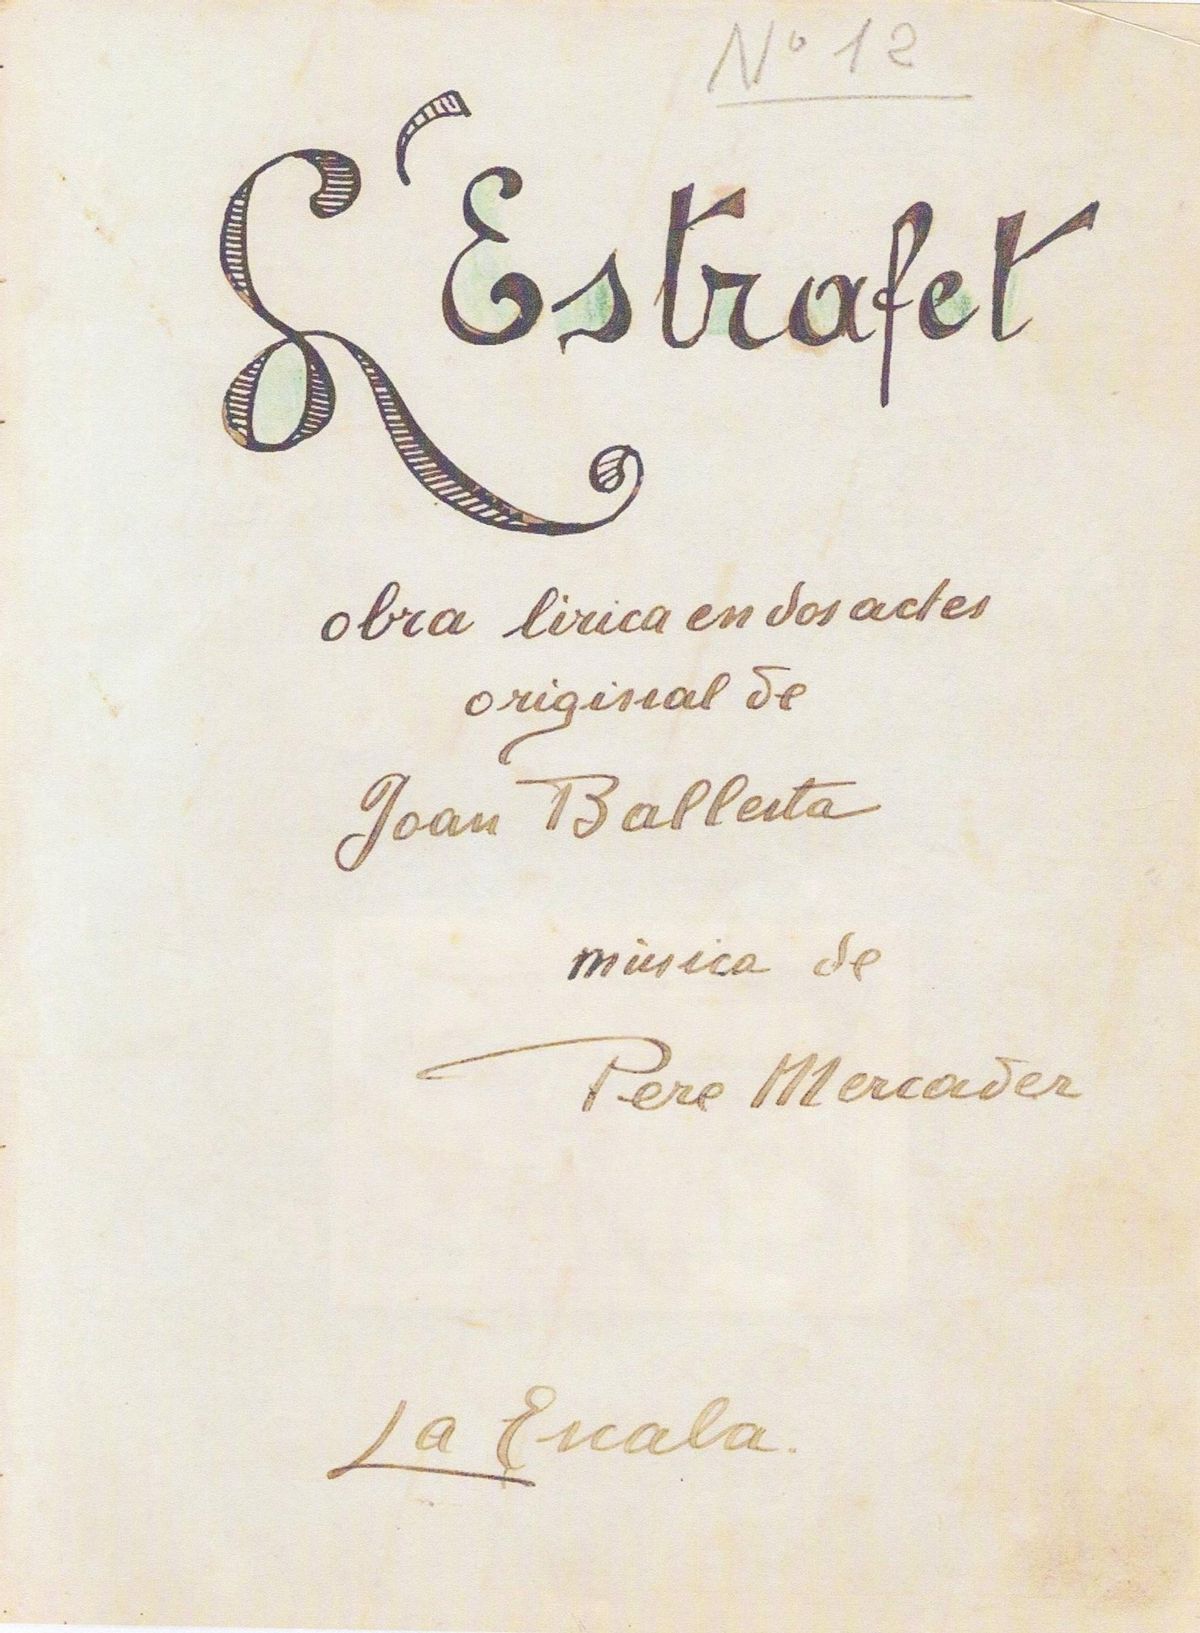 Nº 12
L'Estrafet
obra lirica en dos actes
original de
Joan Ballesta
mùsica de
Pere Mercader
La Escala.